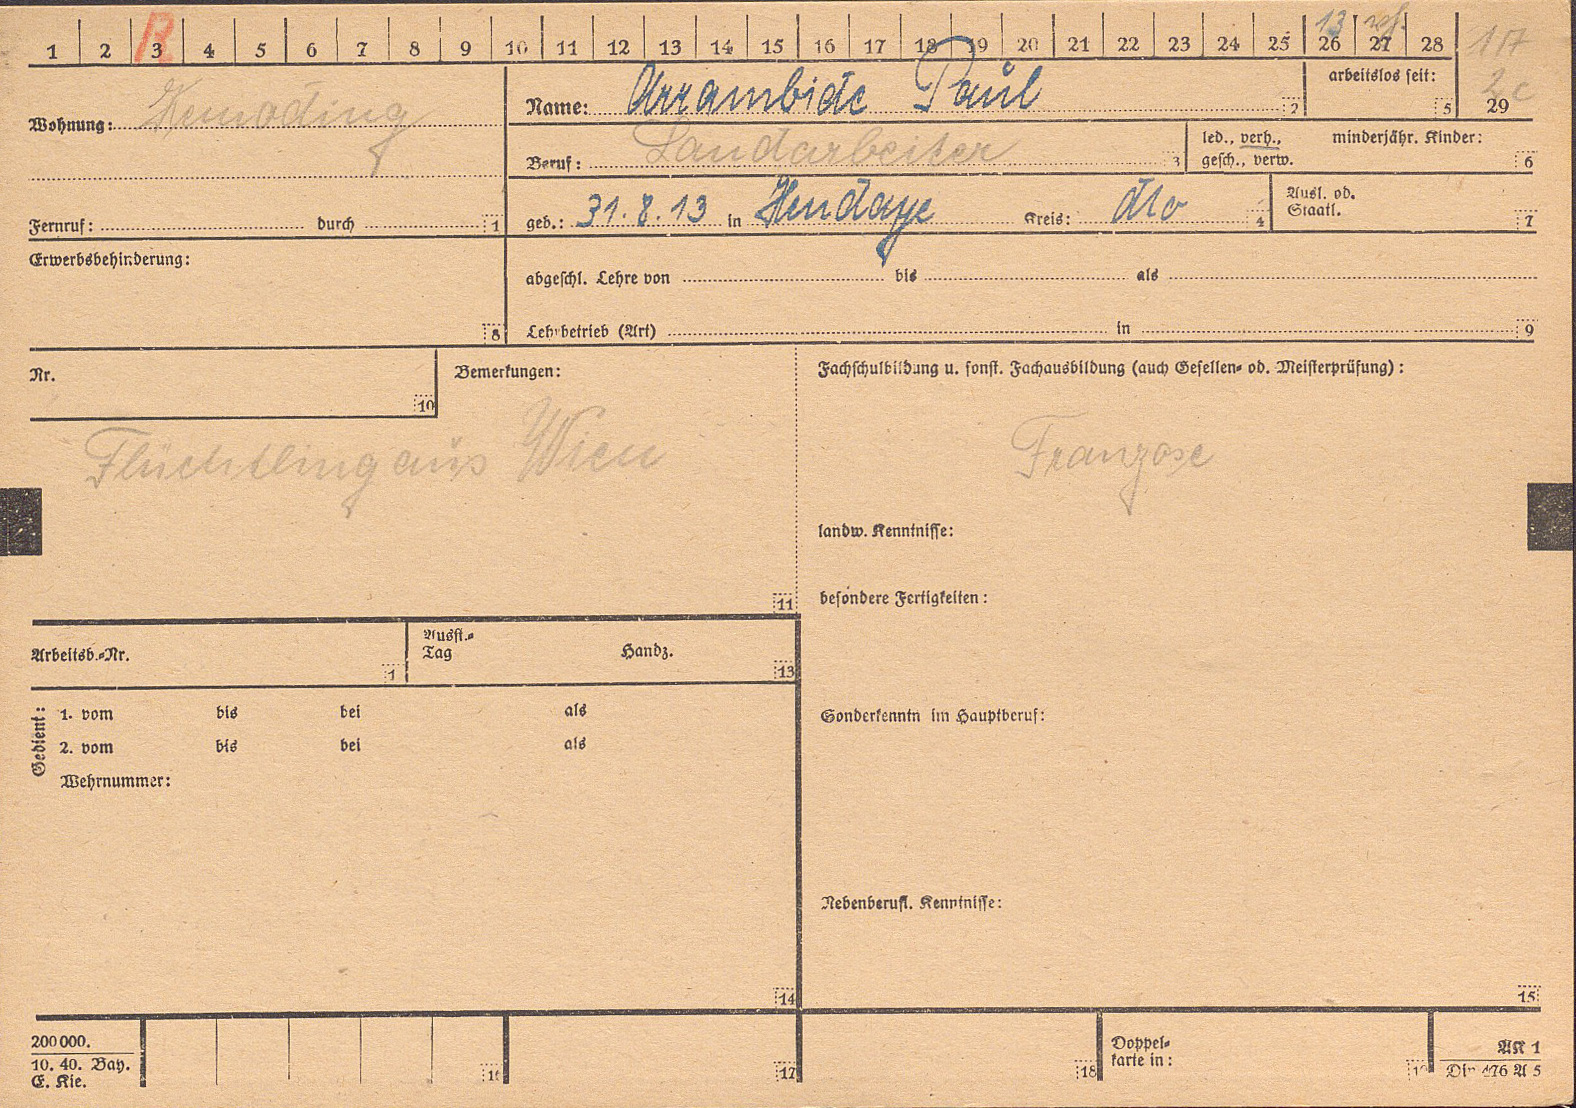 13 ref.
1 2 3 4 5 6 7 8 9 10 11 12 13 14 15 16 17 18 19 20 21 22 23 24 25 26 27 28
R
117
2c
29
Wohnung:
Fernruf: durch 1
Name: Arrambide Paul 2
arbeitslos seit: 5
Beruf: Landarbeiter 3
led., verh., minderjähr. Kinder:
gesch., verw. 6
geb.: 31.8.13 in Hendaye Kreis: dto 4
Ausl. od.
Staatl. 7
Erwerbsbehinderung:
8
abgeschl. Lehre von bis als
Lehrbetrieb (Art) in 9
Nr.
10
Bemerkungen:
Flüchtling aus Wien
11
Fachschulbildung u. sonst. Fachausbildung (auch Gesellen- od. Meisterprüfung):
Franzose
landw. Kenntnisse:
besondere Fertigkeiten:
Sonderkenntn im Hauptberuf:
Nebenberufl. Kenntnisse:
15
Arbeitsb.-Nr.
1
Ausst.-
Tag Handz. 13
Gedient:
1. vom bis bei als
2. vom bis bei als
Wehrnummer:
14
200000.
10. 40. Bay.
E. Kie.
16
17
18
Doppel-
karte in:
19
AK 1
Din 476 A 5